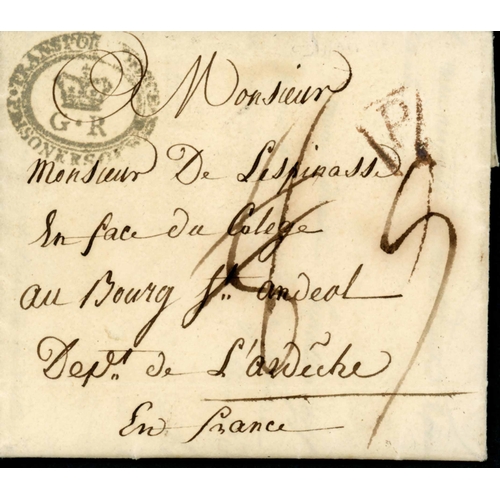 TRANSPORT OFFICE
PRISONERS OF WAR
G·R
P
A Monsieur
Monsieur De Lespinasse
En face du Colege
au Bourg St. andeol
Dept. de L'ardêche
En france